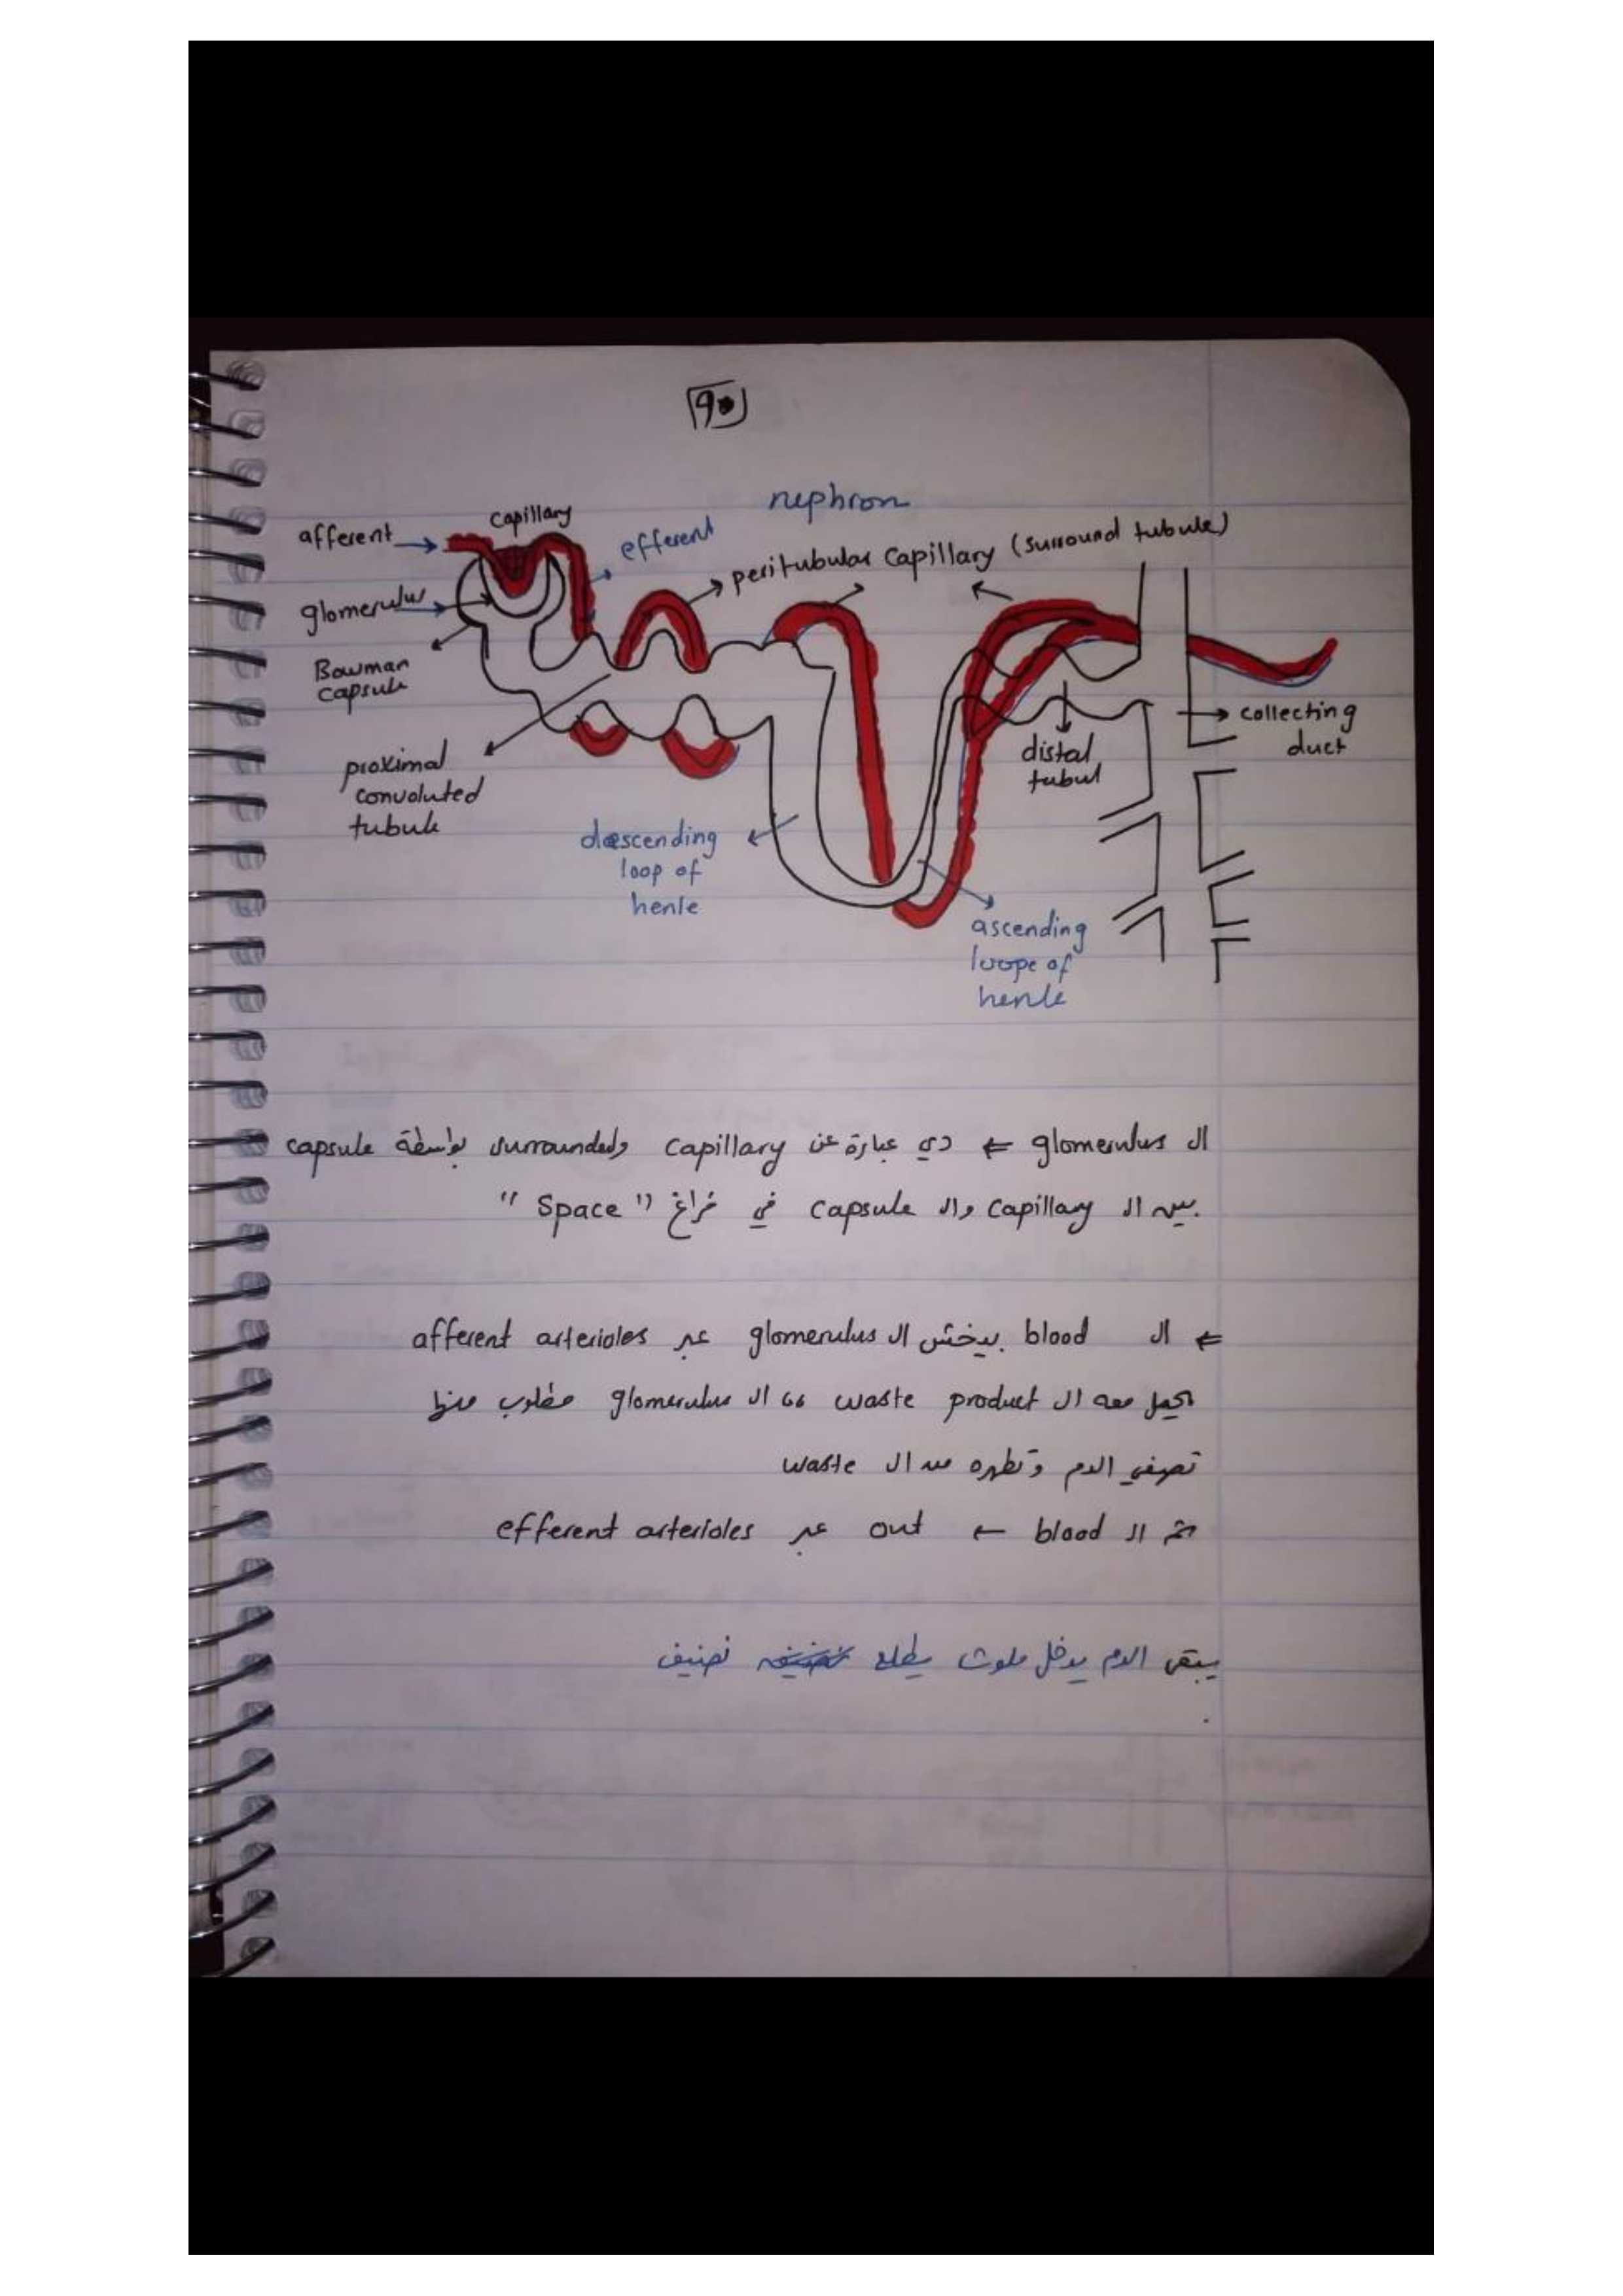 nephron
capillary
afferent
efferent
peritubular capillary (surround tubule)
glomerulus
Bowman
capsule
proximal
convoluted
tubule
descending
loop of
henle
ascending
loope of
henle
distal
tubul
collecting
duct
ال glomerulus ⇐ دي عبارة عن capillary و surrounded بواسطة capsule
بين ال capillary وال capsule في فراغ "Space"
⇐ ال blood بيخش ال glomerulus عبر afferent arterioles
يحمل معه ال waste product ،، ال glomerulus مطلوب منها
تصفي الدم وتطهره من ال waste
ثم ال blood ← out عبر efferent arterioles
يبقى الدم يدخل ملوث يطلع نضيف